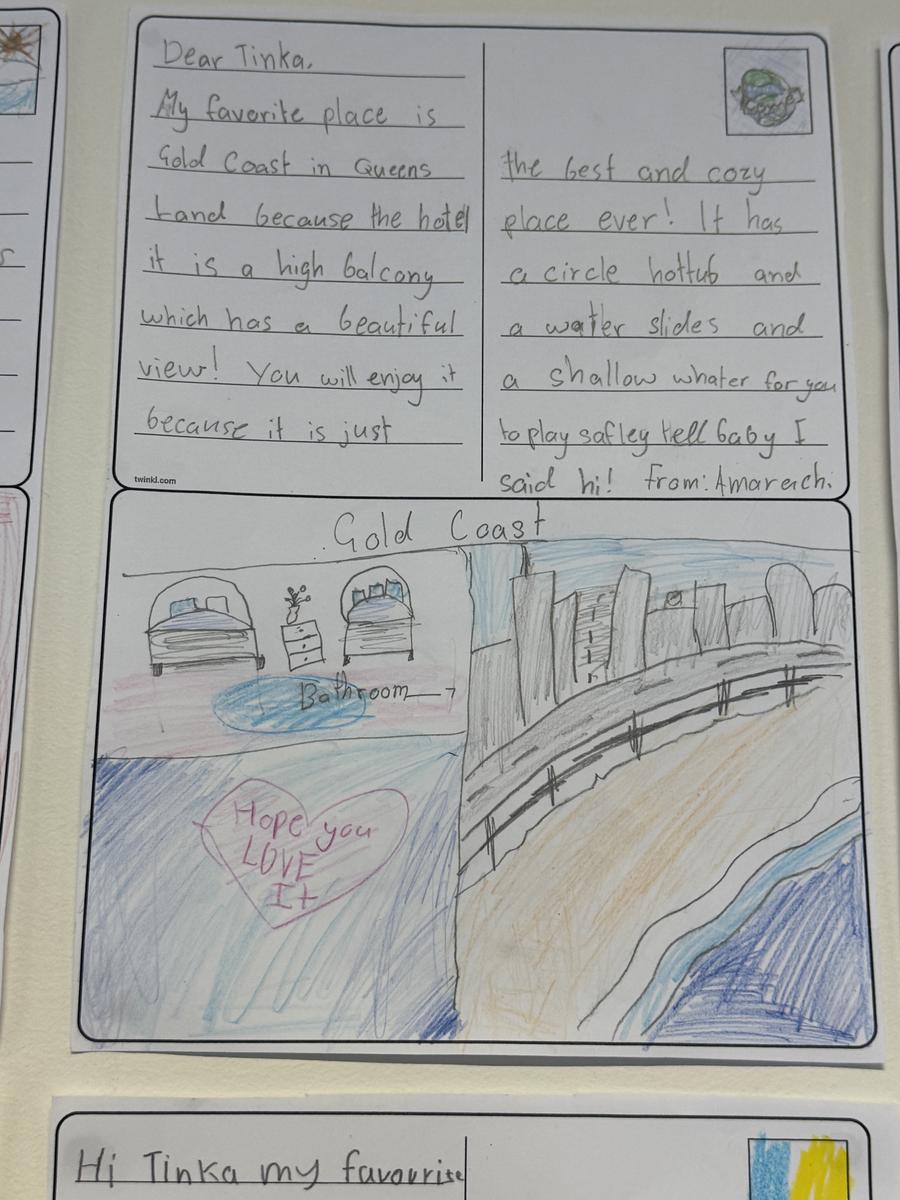 Dear Tinka,
My favorite place is
Gold Coast in Queens
Land because the hotel
it is a high balcony
which has a beautiful
view! You will enjoy it
because it is just
twinkl.com
the best and cozy
place ever! It has
a circle hottub and
a water slides and
a shallow whater for you
to play safley tell baby I
said hi! From: Amarech.
Gold Coast
Bathroom
Hope you
LOVE
It
Hi Tinka my favourite